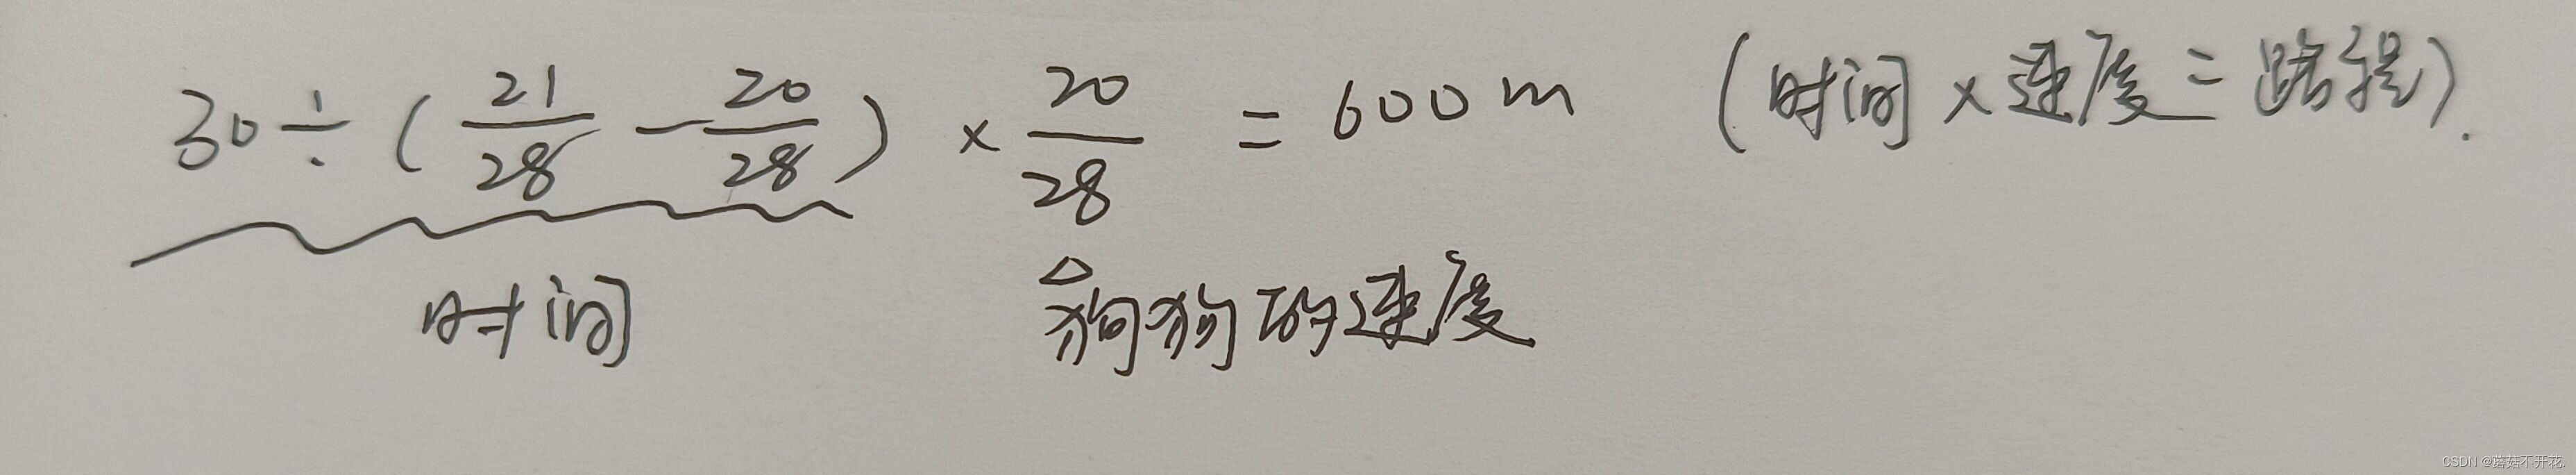 30÷(21/28-20/28)×20/28=600m (时间×速度=路程).
时间 狗狗的速度
CSDN @蘑菇不开花